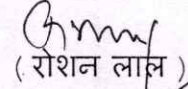 ( रोशन लाल )